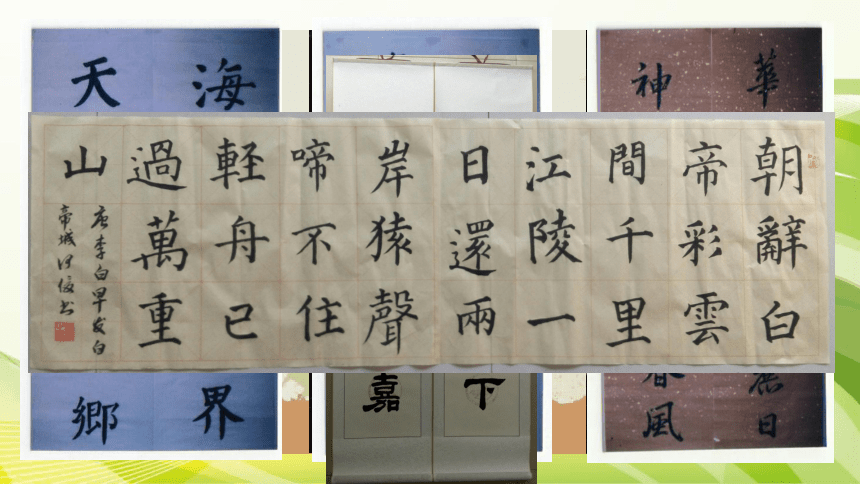 朝辭白
帝彩雲
間千里
江陵一
日還兩
岸猿聲
啼不住
軽舟已
過萬重
山
唐李白早发白
帝城书
海
界
天
鄉
下
嘉
華
日
神
春風